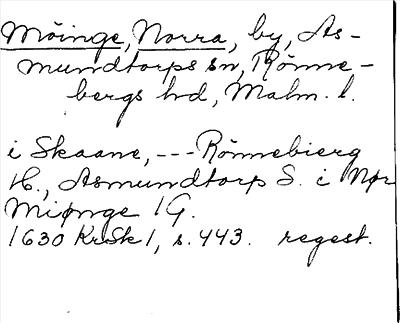 Möinge, Norra, by, As-
mundtorps sn, Rönne-
bergs hd, Malm. l.
i Skaane, --- Rönnebierg
H., Asmundtorp S. i Nør
Miønge 1 G.
1630 KrSk 1, s. 443. regest.